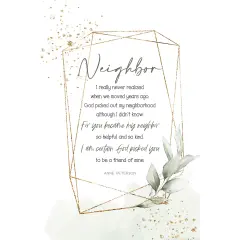 Neighbor
I really never realized
when we moved years ago
God picked out my neighborhood
although I didn't know
For you became my neighbor
so helpful and so kind
I am certain God picked you
to be a friend of mine